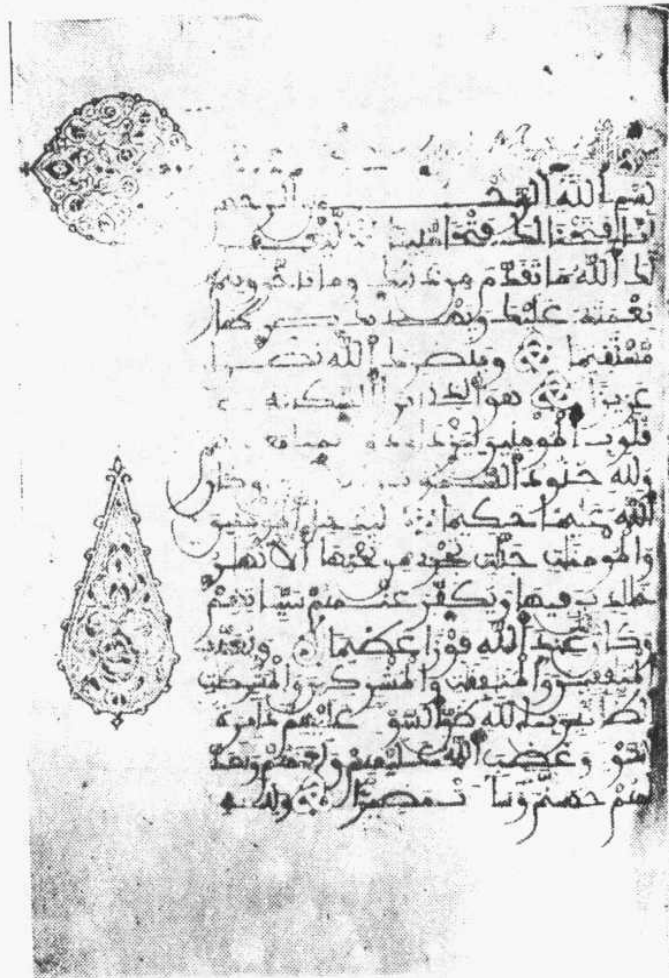 بسم الله الرحمن الرحيم
انا فتحنا لك فتحا مبينا ليغفر
لك الله ما تقدم من ذنبك وما تاخر ويتم
نعمته عليك ويهديك صراطا
مستقيما وينصرك الله نصرا
عزيزا هو الذي انزل السكينة في
قلوب المومنين ليزدادوا ايمنا مع
ولله جنود السموت وكان
الله عليما حكيما ليدخل المومنين
والمومنت جنت تجري من تحتها الانهر
خلدين فيها ويكفر عنهم سيئاتهم
وكان عند الله فوزا عظيما ويعذب
المنفقين والمنفقت والمشركين والمشركت
الظانين بالله ظن السوء عليهم دائرة
السوء وغضب الله عليهم ولعنهم واعد
لهم جهنم وساءت مصيرا ولله